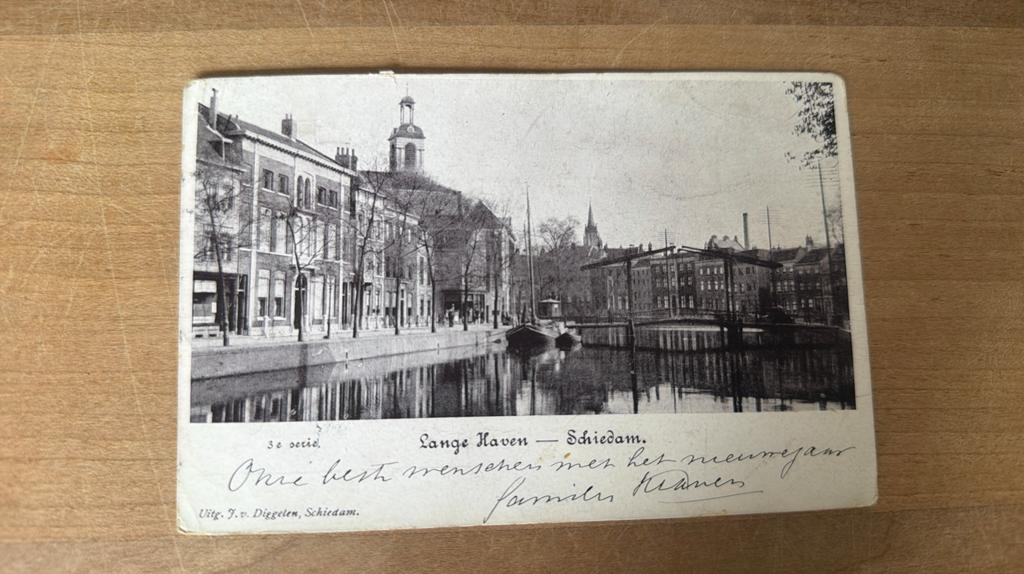 3e serie.
Lange Haven — Schiedam.
Onze beste wenschen met het nieuwejaar
familie
Uitg. J. v. Diggelen, Schiedam.